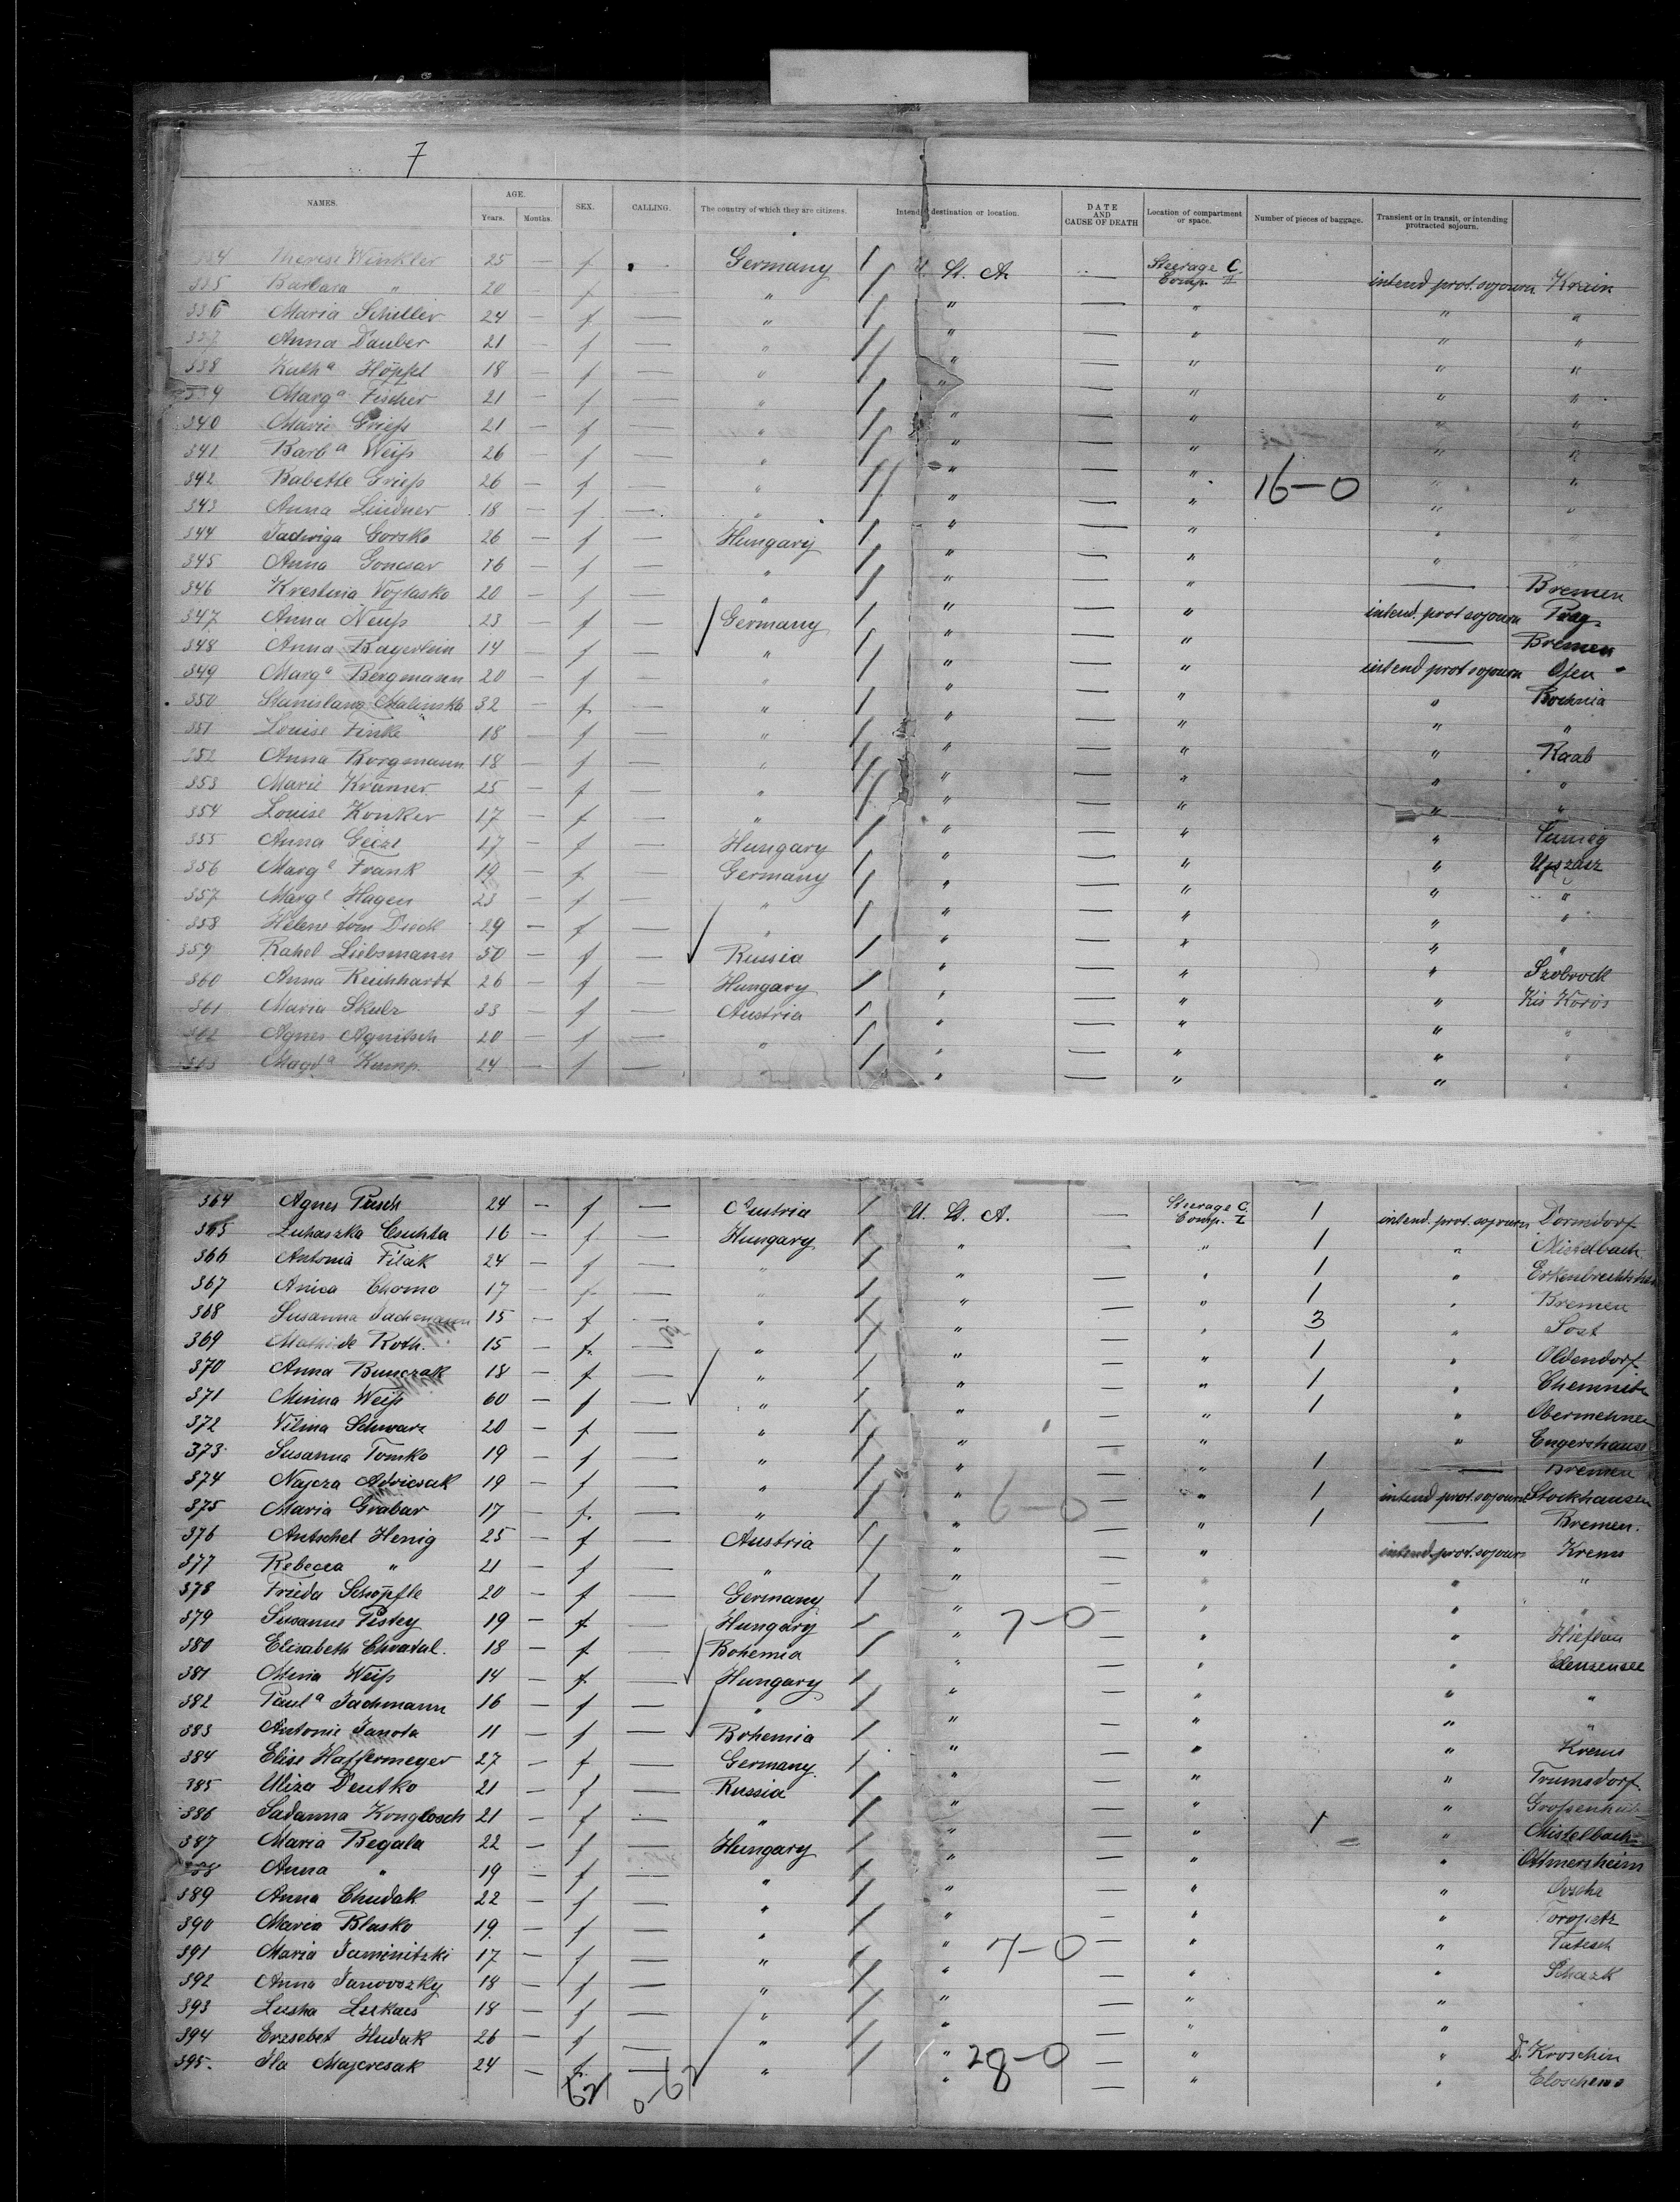 7
NAMES. AGE. Years. Months. SEX. CALLING. The country of which they are citizens. Intended destination or location. DATE AND CAUSE OF DEATH Location of compartment or space. Number of pieces of baggage. Transient or in transit, or intending protracted sojourn.
334 Therese Winkler 25 — f — Germany U. St. A. — Steerage C. Comp. II intend prot. sojourn Krain
335 Barbara " 20 — f — " " — " " "
336 Maria Schiller 24 — f — " " — " " "
337 Anna Dauber 21 — f — " " — " " "
338 Kath a Höpfel 18 — f — " " — " " "
339 Marg a Fischer 21 — f — " " — " " "
340 Marie Grieß 21 — f — " " — " " "
341 Barb a Weiß 26 — f — " " — " " "
342 Babette Grieß 26 — f — " " — " 16-0 " "
343 Anna Lindner 18 — f — " " — " " "
344 Jadwiga Gorsko 26 — f — Hungary " — " " "
345 Anna Goncsar 16 — f — " " — " — Bremen
346 Krestina Vojtasko 20 — f — " " — " intend. prot sojourn Prag
347 Anna Neuß 23 — f — Germany " — " — Bremen
348 Anna Bayerlein 14 — f — " " — " intend prot sojourn Ofen
349 Marg a Bergmann 20 — f — " " — " " Bochnia
350 Stanislawa Malinska 32 — f — " " — " " "
351 Louise Finke 18 — f — " " — " " Raab
352 Anna Borgmann 18 — f — " " — " " "
353 Marie Kramer 25 — f — " " — " " "
354 Louise Konker 17 — f — " " — " " Sumeg
355 Anna Geczi 17 — f — Hungary " — " "
356 Marg e Frank 19 — f — Germany " — " " "
357 Marg e Hagen 23 — f — " " — " " "
358 Helene tom Dieck 29 — f — " " — " " "
359 Rahel Liebsmann 50 — f — Russia " — " " Szobrock
360 Anna Reichhardt 26 — f — Hungary " — " " Kis Körös
361 Maria Skulz 33 — f — Austria " — " " "
362 Agnes Agnitsch 20 — f — " " — " " "
363 Magd a Kump. 24 — f — " " — " " "
364 Agnes Pusch 24 — f — Austria U. St. A. — Steerage C. Comp. I 1 intend. prot. sojourn Dorndorf
365 Luhaszka Csuhta 16 — f — Hungary " — " 1 " Mistelbach
366 Antonia Filak 24 — f — " " — " 1 "
367 Anica Chomo 17 — f — " " — " 1 " Bremen
368 Susanna Jachmann 15 — f — " " — " 3 " Sost
369 Mathilde Roth. 15 — f — " " — " 1 " Oldendorf
370 Anna Bunczak 18 — f — " " — " 1 " Chemnitz
371 Minna Weiß 60 — f — " " — " 1 " Obermehnen
372 Vilma Schwarz 20 — f — " " — " " Engershausen
373 Susanna Tomko 19 — f — " " — " 1 — Bremen
374 Najcza Adricsak 19 — f — " " 6-0 — " 1 intend prot. sojourn Stockhausen
375 Maria Grabar 17 — f — " " — " 1 — Bremen.
376 Antschel Henig 25 — f — Austria " — " intend. prot. sojourn Krems
377 Rebecca " 21 — f — " " — " " "
378 Frieda Schöpfle 20 — f — Germany " — " " "
379 Susanne Pistey 19 — f — Hungary " 7-0 — " " Hieflau
380 Elisabeth Chvatal. 18 — f — Bohemia " — " "
381 Mina Weiß 14 — f — Hungary " — " " "
382 Paul a Jachmann 16 — f — " " — " " "
383 Antonie Janota 11 — f — Bohemia " — " " Krems
384 Elise Haffermeyer 27 — f — Germany " — " " Trumsdorf
385 Uliza Deutko 21 — f — Russia " — " "
386 Sadanna Konglosch 21 — f — " " — " 1 " Mistelbach
387 Maria Begala 22 — f — Hungary " — " " Ottmersheim
388 Anna " 19 — f — " " — " "
389 Anna Chudak 22 — f — " " — " " Toropetz
390 Maria Blasko 19 — f — " " 7-0 — " "
391 Maria Jaminitzki 17 — f — " " — " " Schazk
392 Anna Janovozky 18 — f — " " — " " "
393 Lusha Lukacs 18 — f — " " — " "
394 Erzsebet Hudak 26 — f — " " 28-0 — " " D. Kroschin
395. Ila Majercsak 24 — f — " " — " "
62 0-62